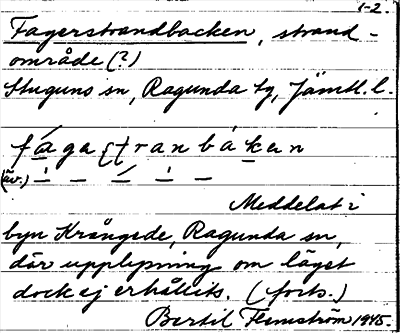 1-2.
Fagerstrandbacken, strand-
område (?)
Stuguns sn, Ragunda tg, Jämtl. l.
fága ʃtranbákan
(äv.)
Meddelat i
byn Krångede, Ragunda sn,
där upplysning om läget
dock ej erhållits. (forts.)
Bertil Flemström 1945.